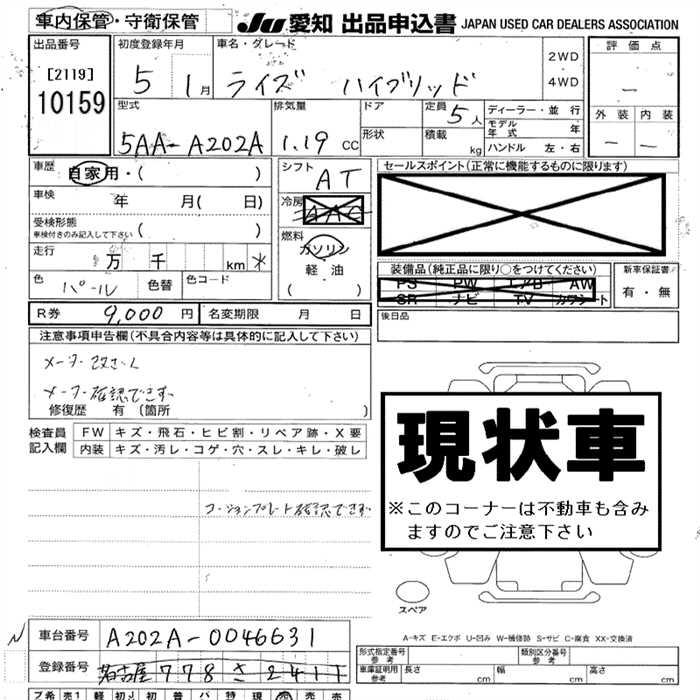 車内保管・守衛保管
JU 愛知 出品申込書 JAPAN USED CAR DEALERS ASSOCIATION
出品番号
[2119]
10159
初度登録年月
5 1月
車名・グレード
ライズ ハイブリッド
2WD
4WD
評価点
—
外装 内装
— —
型式
5AA-A202A
排気量
1.19 CC
ドア
形状
定員 5人
積載 kg
ディーラー・並行
モデル年式 年
ハンドル 左・右
車歴 自家用・( )
車検 年 月( 日)
受検形態
車検付きのみ記入して下さい ( )
走行 万 千 km *
色 パール 色替 色コード
シフト AT
冷房 AAC
燃料 ガソリン
軽油
( )
セールスポイント(正常に機能するものに限ります)
装備品(純正品に限り○をつけてください)
PS PW エアB AW
SR ナビ TV カワシート
新車保証書
有・無
後日品
R券 9,000円 名変期限 月 日
注意事項申告欄(不具合内容等は具体的に記入して下さい)
メーター改ざん
メーター確認できず
修復歴 有 (箇所 )
検査員記入欄
FW キズ・飛石・ヒビ割・リペア跡・X要
内装 キズ・汚レ・コゲ・穴・スレ・キレ・破レ
コーションプレート確認できず
現状車
※このコーナーは不動車も含み
ますのでご注意下さい
スペア
A-キズ E-エクボ U-凹み W-補修跡 S-サビ C-腐食 XX-交換済
車台番号 A202A-0046631
登録番号 名古屋 778 さ 2411
形式指定番号 参考
類別区分番号 参考
車庫証明用 参考 長さ cm 幅 cm 高さ cm